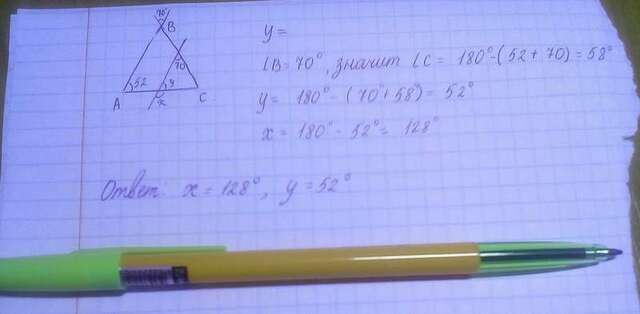 70°
B
y =
70
∠B = 70°, значит ∠C = 180° - (52 + 70) = 58°
52
y
A
x
C
y = 180° - (70° + 58°) = 52°
x = 180° - 52° = 128°
Ответ: x = 128°, y = 52°